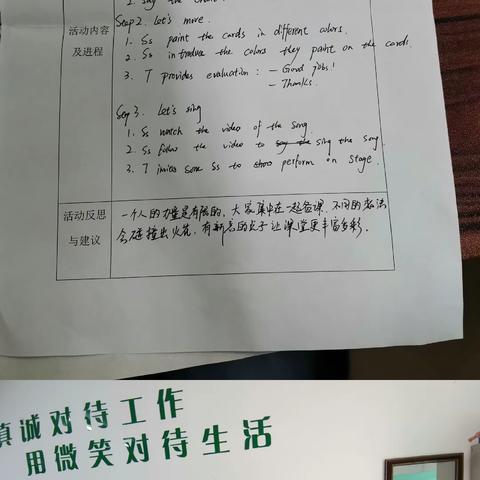 2. say the
Step 2. Let's move.
活动内容
1. Ss paint the cards in different colors.
及进程
2. Ss introduce the colors they paint on the cards.
3. T provides evaluation: — Good jobs!
— Thanks.
Step 3. Let's sing
1. Ss watch the video of the song.
2. Ss follow the video to sing the song.
3. T invites some Ss to perform on stage.
活动反思
与建议
一个人的力量是有限的,大家集中在一起备课,不同的想法
会碰撞出火花,有新意的点子让课堂更丰富多彩.
真诚对待工作
用微笑对待生活